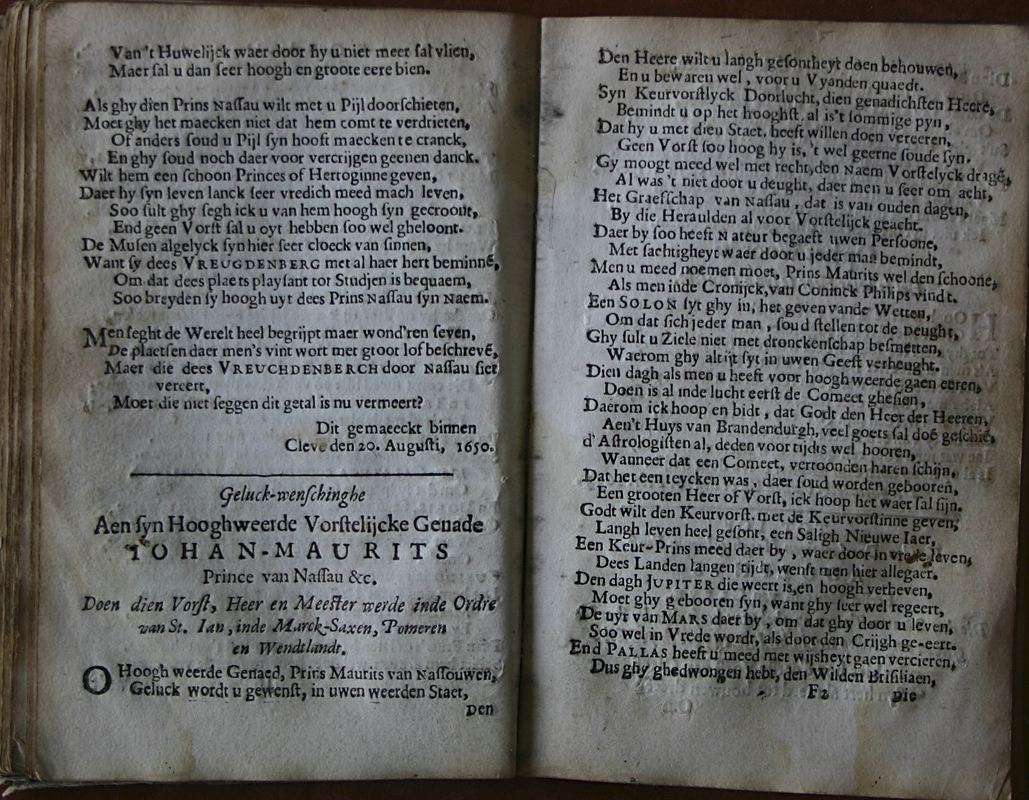 Van't Huwelijck waer door hy u niet meer sal vlien,
Maer sal u dan seer hoogh en groote eere bien.
Als ghy dien Prins Nassau wilt met u Pijl doorschieten,
Moet ghy het maecken niet dat hem comt te verdrieten,
Of anders soud u Pijl syn hooft maecken te cranck,
En ghy soud noch daer voor vercrijgen geenen danck.
Wilt hem een schoon Princes of Hertoginne geven,
Daer hy syn leven lanck seer vredich meed mach leven,
Soo sult ghy segh ick u van hem hoogh syn gecroont,
End geen Vorst sal u oyt hebben soo wel gheloont.
De Musen algelyck syn hier seer cloeck van sinnen,
Want sy dees VREUGDENBERG met al haer hert beminnē,
Om dat dees plaets playsant tor Studjen is bequaem,
Soo breyden sy hoogh uyt dees Prins Nassau syn Naem.
Men seght de Werelt heel begrijpt maer wond'ren seven,
De plaetsen daer men's vint wort met groot lof beschrevē,
Maer die dees VREUCHDENBERCH door Nassau siet
vereert,
Moet die niet seggen dit getal is nu vermeert?
Dit gemaeckt binnen
Cleve den 20. Augusti, 1650.
Geluck-wenschinghe
Aen syn Hooghweerde Vorstelijcke Genade
IOHAN-MAURITS
Prince van Nassau &c.
Doen dien Vorst, Heer en Meester werde inde Ordre
van St. Ian, inde Marck-Saxen, Pomeren
en Wendtlandt.
O Hoogh weerde Genaed, Prins Maurits van Nassouwen,
Geluck wordt u gewenst, in uwen weerden Staet,
Den
Den Heere wilt u langh gesontheyt doen behouwen,
En u bewaren wel, voor u Vyanden quaedt.
Syn Keurvorstlyck Doorlucht, dien genadichsten Heerē,
Bemindt u op het hooghst, al is't sommige pyn,
Dat hy u met dien Staet, heeft willen doen vereeren,
Geen Vorst soo hoog hy is, 't wel geerne soude syn.
Gy moogt meed wel met recht, den Naem Vorstelyck dragē,
Al was 't niet door u deught, daer men u seer om acht,
Het Graefschap van Nassau, dat is van ouden dagen,
By die Heraulden al voor Vorstelijck geacht.
Daer by soo heeft Nateur begaeft uwen Persoone,
Met sachtigheyt waer door u jeder man bemindt,
Men u meed noemen moet, Prins Maurits wel den schoone,
Als men inde Cronijck, van Coninck Philips vindt.
Een SOLON syt ghy in, het geven vande Wetten,
Om dat sich jeder man, soud stellen tot de Deught,
Ghy sult u Ziele niet met dronckenschap besmetten,
Waerom ghy altijt syt in uwen Geest verheught.
Dien dagh als men u heeft voor hoogh weerde gaen eeren,
Doen is al inde lucht eerst de Comeet ghesien,
Daerom ick hoop en bidt, dat Godt den Heer der Heeren,
Aen't Huys van Brandendurgh, veel goets sal doē geschiē,
d'Astrologisten al, deden voor tijdts wel hooren,
Wanneer dat een Comeet, vertoonden haren schijn,
Dat het een teycken was, daer soud worden gebooren,
Een grooten Heer of Vorst, ick hoop het waer sal sijn.
Godt wilt den Keurvorst, met de Keurvorstinne geven,
Langh leven heel gesont, een Saligh Nieuwe Iaer,
Een Keur-Prins meed daer by, waer door in vrede leven,
Dees Landen langen tijdt, wenst men hier allegaer.
Den dagh JUPITER die weert is, en hoogh verheven,
Moet ghy gebooren syn, want ghy seer wel regeert,
De uyr van MARS daer by, om dat ghy door u leven,
Soo wel in Vrede wordt, als door den Crijgh ge-eert.
End PALLAS heeft u meed met wijsheyt gaen vercieren,
Dus ghy ghedwongen hebt, den Wilden Brisiliaen,
F2 Die